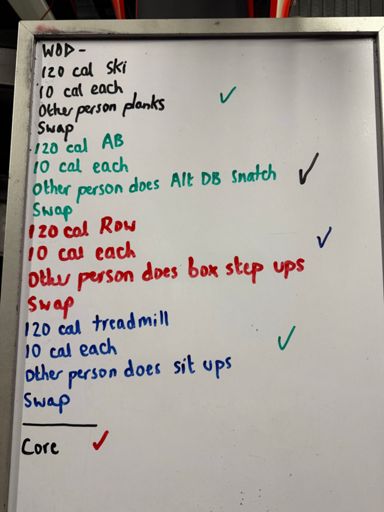 WOD -
120 cal Ski
10 cal each
Other person planks
Swap
120 cal AB
10 cal each
Other person does Alt DB Snatch
Swap
120 cal Row
10 cal each
Other person does box step ups
Swap
120 cal treadmill
10 cal each
Other person does sit ups
Swap
Core